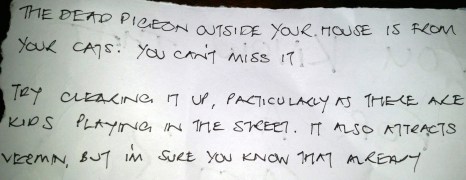 THE DEAD PIGEON OUTSIDE YOUR HOUSE IS FROM
YOUR CATS. YOU CAN'T MISS IT
TRY CLEARING IT UP, PARTICULARLY AS THERE ARE
KIDS PLAYING IN THE STREET. IT ALSO ATTRACTS
VERMIN, BUT I'M SURE YOU KNOW THAT ALREADY